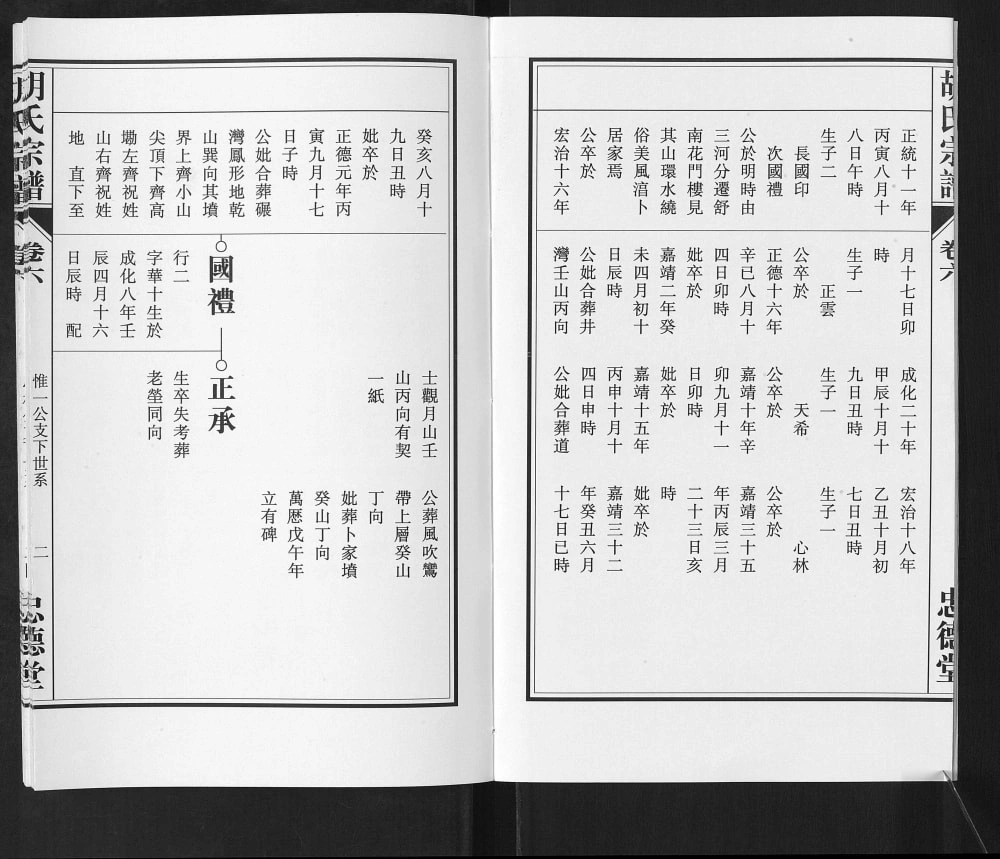 胡氏宗譜
卷六
忠德堂
正統十一年
丙寅八月十
八日午時
生子二
長國印
次國禮
公於明時由
三河分遷舒
南花門樓見
其山環水繞
俗美風淯卜
居家焉
公卒於
宏治十六年
月十七日卯
時
生子一
正雲
公卒於
正德十六年
辛巳八月十
四日卯時
妣卒於
嘉靖二年癸
未四月初十
日辰時
公妣合葬井
灣壬山丙向
成化二十年
甲辰十月十
九日丑時
生子一
天希
公卒於
嘉靖十年辛
卯九月十一
日卯時
妣卒於
嘉靖十五年
丙申十月十
四日申時
公妣合葬道
宏治十八年
乙丑十月初
七日丑時
生子一
心林
公卒於
嘉靖三十五
年丙辰三月
二十三日亥
時
妣卒於
嘉靖三十二
年癸丑六月
十七日巳時
癸亥八月十
九日丑時
妣卒於
正德元年丙
寅九月十七
日子時
公妣合葬碾
灣鳳形地乾
山巽向其墳
界上齊小山
尖頂下齊高
墈左齊祝姓
山右齊祝姓
地 直下至
國禮
行二
字華十生於
成化八年壬
辰四月十六
日辰時 配
士觀月山壬
山丙向有契
一紙
正承
生卒失考葬
老塋同向
公葬風吹鸞
帶上層癸山
丁向
妣葬卜家墳
癸山丁向
萬厯戊午年
立有碑
胡氏宗譜
卷六
惟一公支下世系
二
忠德堂